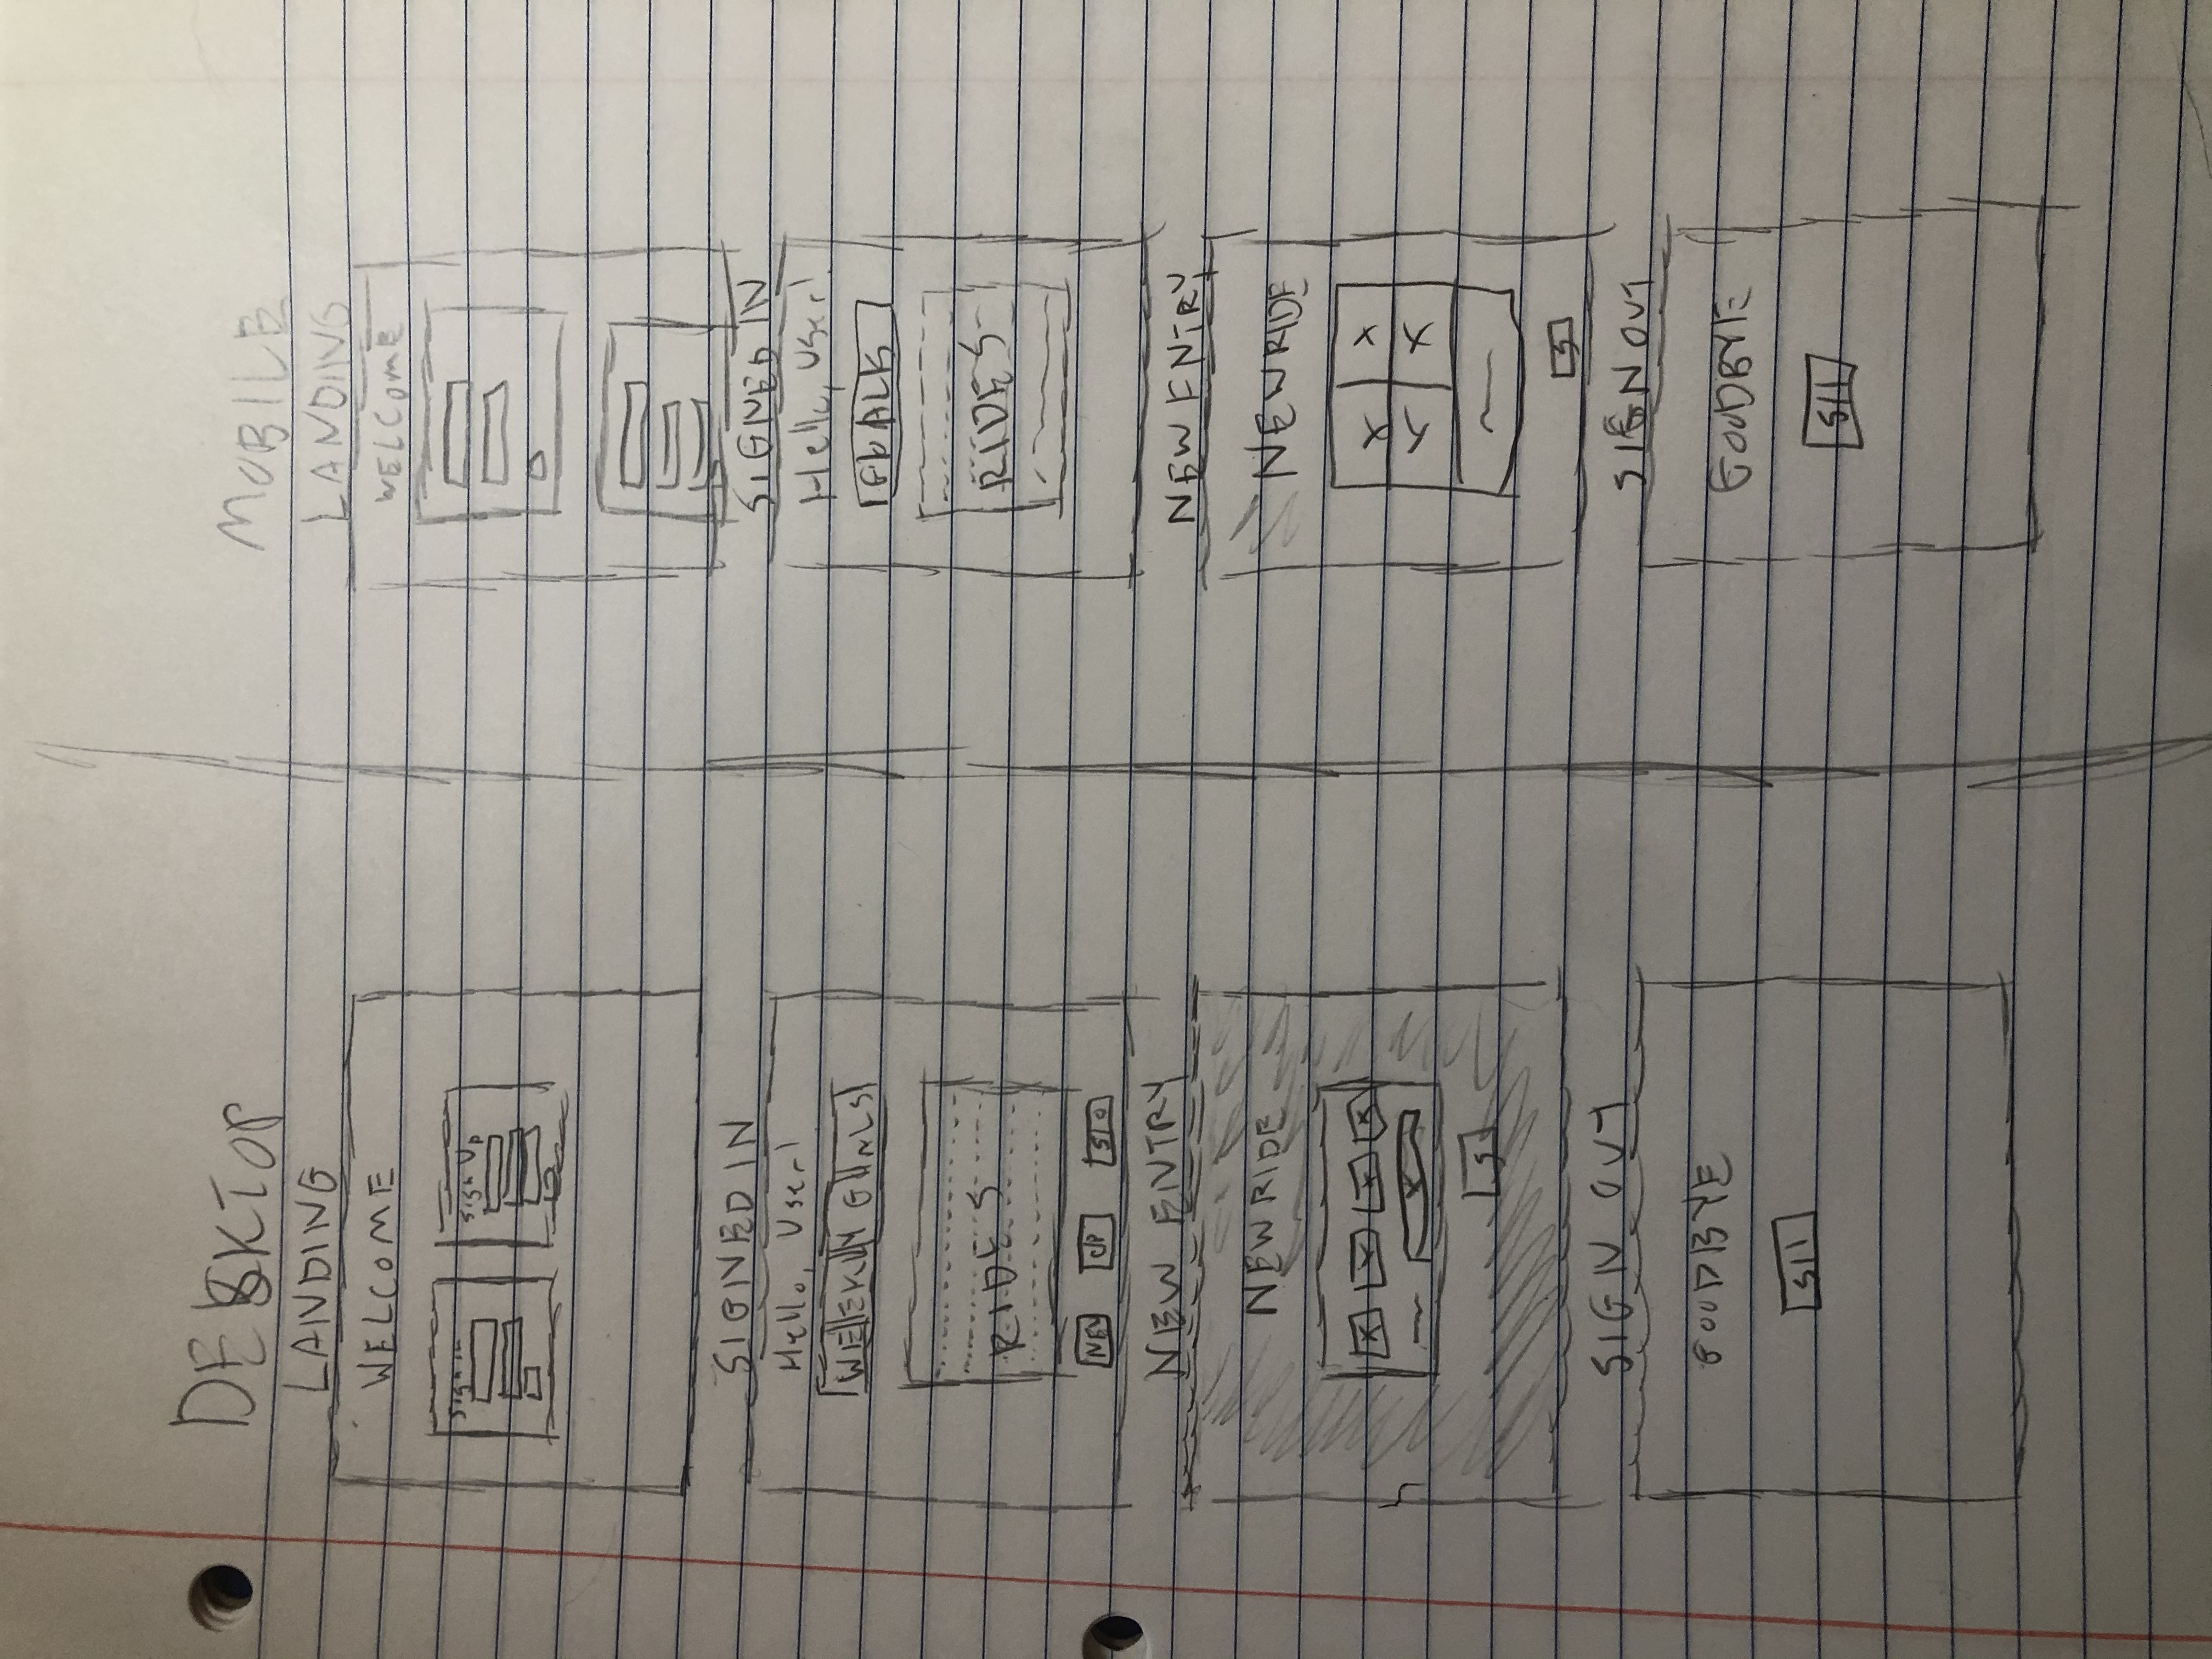 DESKTOP
LANDING
WELCOME
Sign in
Sign Up
SIGNED IN
Hello, User!
WEEKLY GOALS
RIDES
NEW
UP
S/O
NEW ENTRY
NEW RIDE
X X X X
X
S
SIGN OUT
GOODBYE
S/I
MOBILE
LANDING
WELCOME
SIGNED IN
Hello, User!
GOALS
RIDES
NEW ENTRY
NEW RIDE
X X
X X
S
SIGN OUT
GOODBYE
S/I